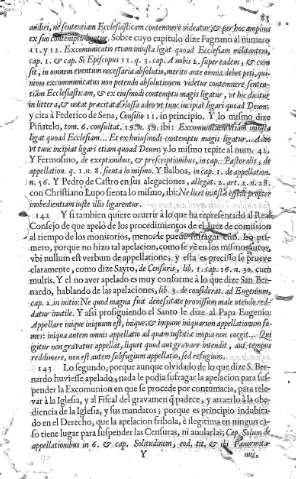 83
ne sententiam Ecclesiasticam contemnere videatur, & per hoc amplius
ex sui contemptu ligetur. Sobre cuyo capitulo dize Fagnano al numero
11. y 12. Excommunicatio etiam iniusta ligat quoad Ecclesiam militantem,
cap. 1. & cap. Si Episcopus 11. q. 3. cap. cui est illata, eadem, & com
sit, in omnem eventum necessaria absolutio, merito ante omnia debet peti, qui-
nimo excommunicatus non petendo absolutionem videtur contemnere senten-
tiam Ecclesiasticam, & ex eiusmodi contemptu magis ligatur, ut hic dicitur
in littera, & notat practicat Glossa adeo ut tunc incipiat ligari quoad Deum,
y cita à Federico de Sena, Consilio 11, in principio. Y lo mismo dize
Piñatelo, tom. 6. consultat. 19. 59. ibi: Excommunicatio etiam iniusta
ligat quoad Ecclesiam... Et ex huiusmodi contemptu magis ligatur... adeo
ut tunc incipiat ligari etiam quoad Deum y lo mismo repite al num. 42.
Y Fermosino, de exceptionibus, & præscriptionibus, in cap. Pastoralis, de
appellation. q. 1. n. 8. sienta lo mismo. Y Balboa, in cap. 1. de appellation.
n. 36. Y Pedro de Castro en sus alegaciones, allegat. 2. art. 2. n. 28.
con Christiano Lupo sienta lo mismo, ibi: Ne licet iniusta esset propter
inobedientiam iuste illis ligarentur.
142 Y si tambien quiere ocurrir à lo que ha representado al Real
Consejo de que apelò de los procedimientos de el Juez de comission
al tiempo de los monitorios, menos le puede sufragar esto. Lo pri-
mero, porque no hizo tal apelacion, como se vè en los mismos autos,
ubi nullum est verbum de appellationes, y esta es preciso se pruebe
claramente, como dize Sayro, de Censuris, lib. 1. cap. 16. n. 30. cum
multis. Y el no aver apelado es muy conforme à lo que dize San Ber-
nardo, hablando de las apelaciones, lib. 3. de considerat. ad Eugenium,
cap. 2. in initio: Ne quod magna fuit necessitate provissum male utendo red-
datur inutile. Y assi prosiguiendo el Santo le dize al Papa Eugenio:
Appellare inique iniquum est, inique, & impune iniquarum appellationum fo-
mes: iniqua autem omnis appellatio ad quam iustitiæ inopia non coegit... Qui
igitur non gravatur appellat, liquet quod aut gravare intendit, aut tempus
reddimere, non est autem suffugium appellatio, sed refugium.
143 Lo segundo, porque aunque olvidado de lo que dize S. Ber-
nardo huviesse apelado, nada le podia sufragar la apelacion para sus-
pender la Excomunion en que se procede por contumacia, para rele-
var à la Iglesia, y al Fiscal del gravamen q̃ padece, y atraerlo à la obe-
diencia de la Iglesia, y sus mandatos; porque es principio indubita-
do en el Derecho, que la apelacion fribola, è ilegitima en ningun ca-
so tiene lugar para suspender las Censuras, ni anularlas; Cap. Solum de
appellationibus in 6. & cap. Solitudinem, eod. tit. & ibi Panormita-
Y